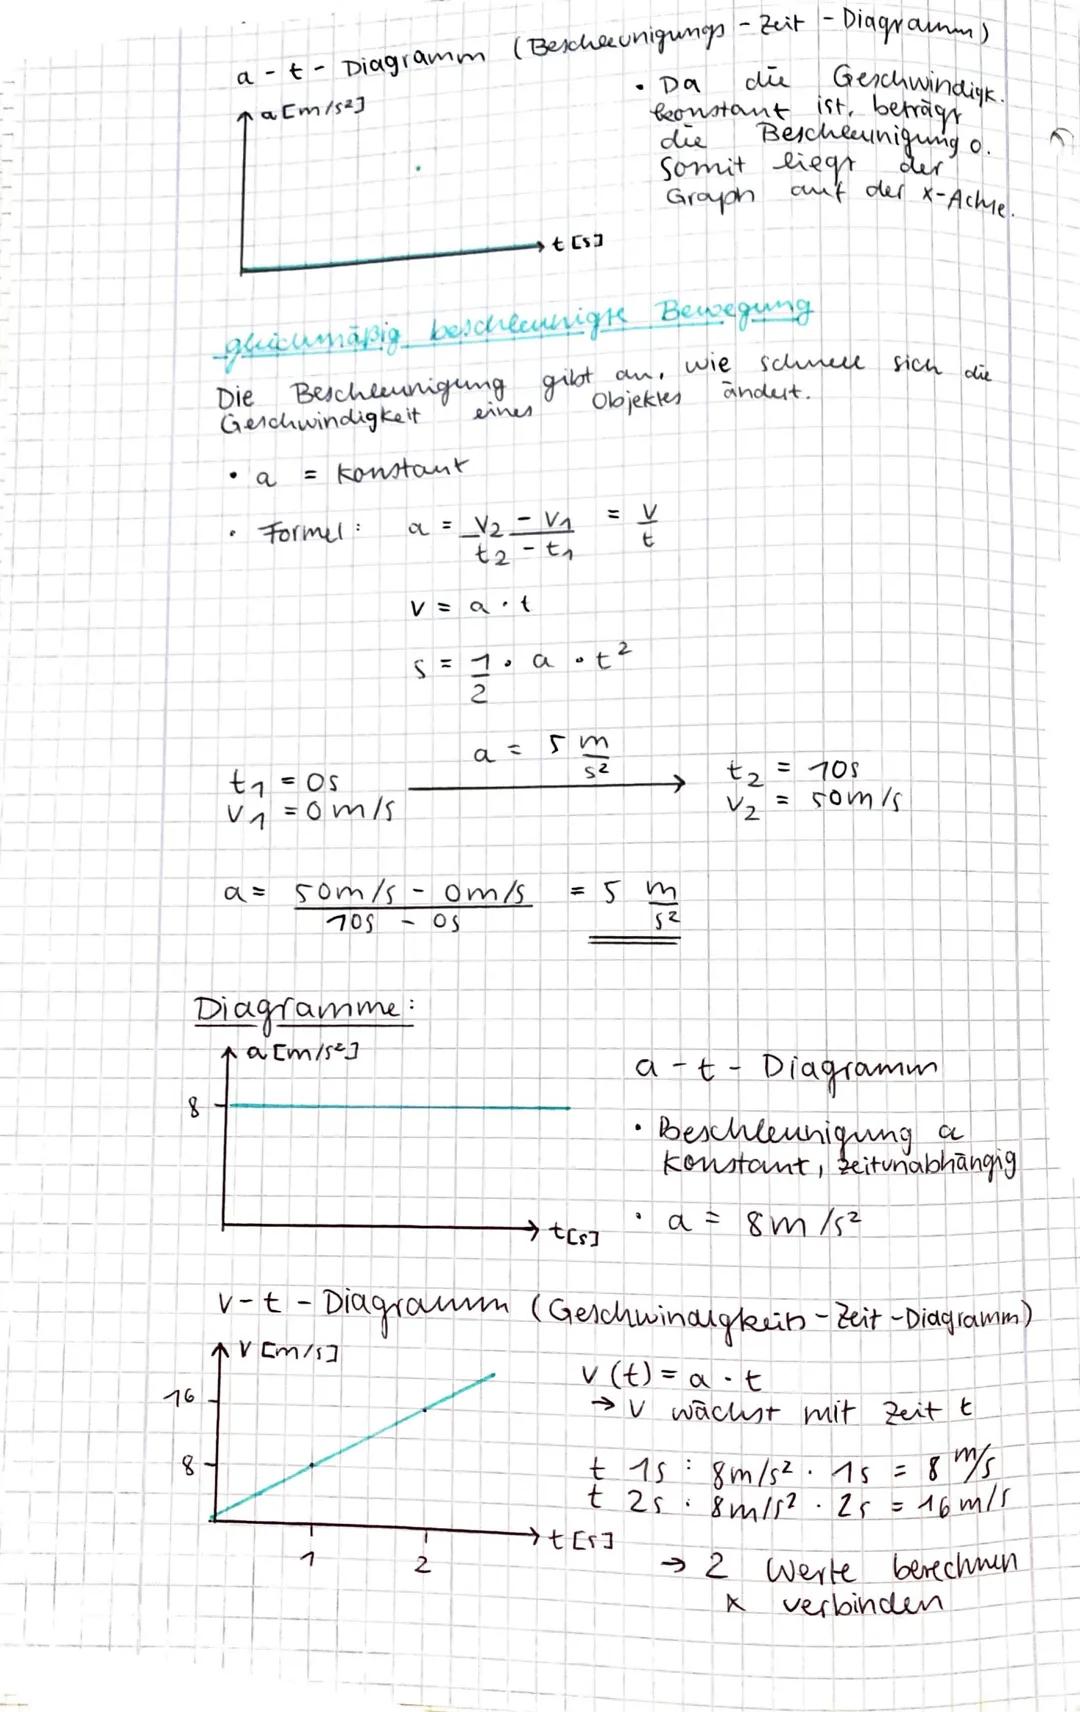 a - t - Diagramm (Beschleunigungs - Zeit - Diagramm)
a [m/s²]
t [s]
• Da die Geschwindigk.
konstant ist, beträgt
die Beschleunigung 0.
Somit liegt der
Graph auf der x-Achse.
gleichmäßig beschleunigte Bewegung
Die Beschleunigung gibt an, wie schnell sich die
Geschwindigkeit eines Objektes ändert.
• a = konstant
• Formel: a = (v₂ - v₁)/(t₂ - t₁) = v/t
v = a · t
s = 1/2 · a · t²
a = 5 m/s²
t₁ = 0s
v₁ = 0 m/s
t₂ = 10s
v₂ = 50m/s
a = (50m/s - 0m/s)/(10s - 0s) = 5 m/s²
Diagramme:
a [m/s²]
8
t[s]
a - t - Diagramm
• Beschleunigung a
konstant, zeitunabhängig
• a = 8m/s²
v - t - Diagramm (Geschwindigkeits - Zeit - Diagramm)
v [m/s]
16
8
1
2
t [s]
v (t) = a · t
→ v wächst mit Zeit t
t 1s : 8m/s² · 1s = 8 m/s
t 2s : 8m/s² · 2s = 16 m/s
→ 2 Werte berechnen
& verbinden